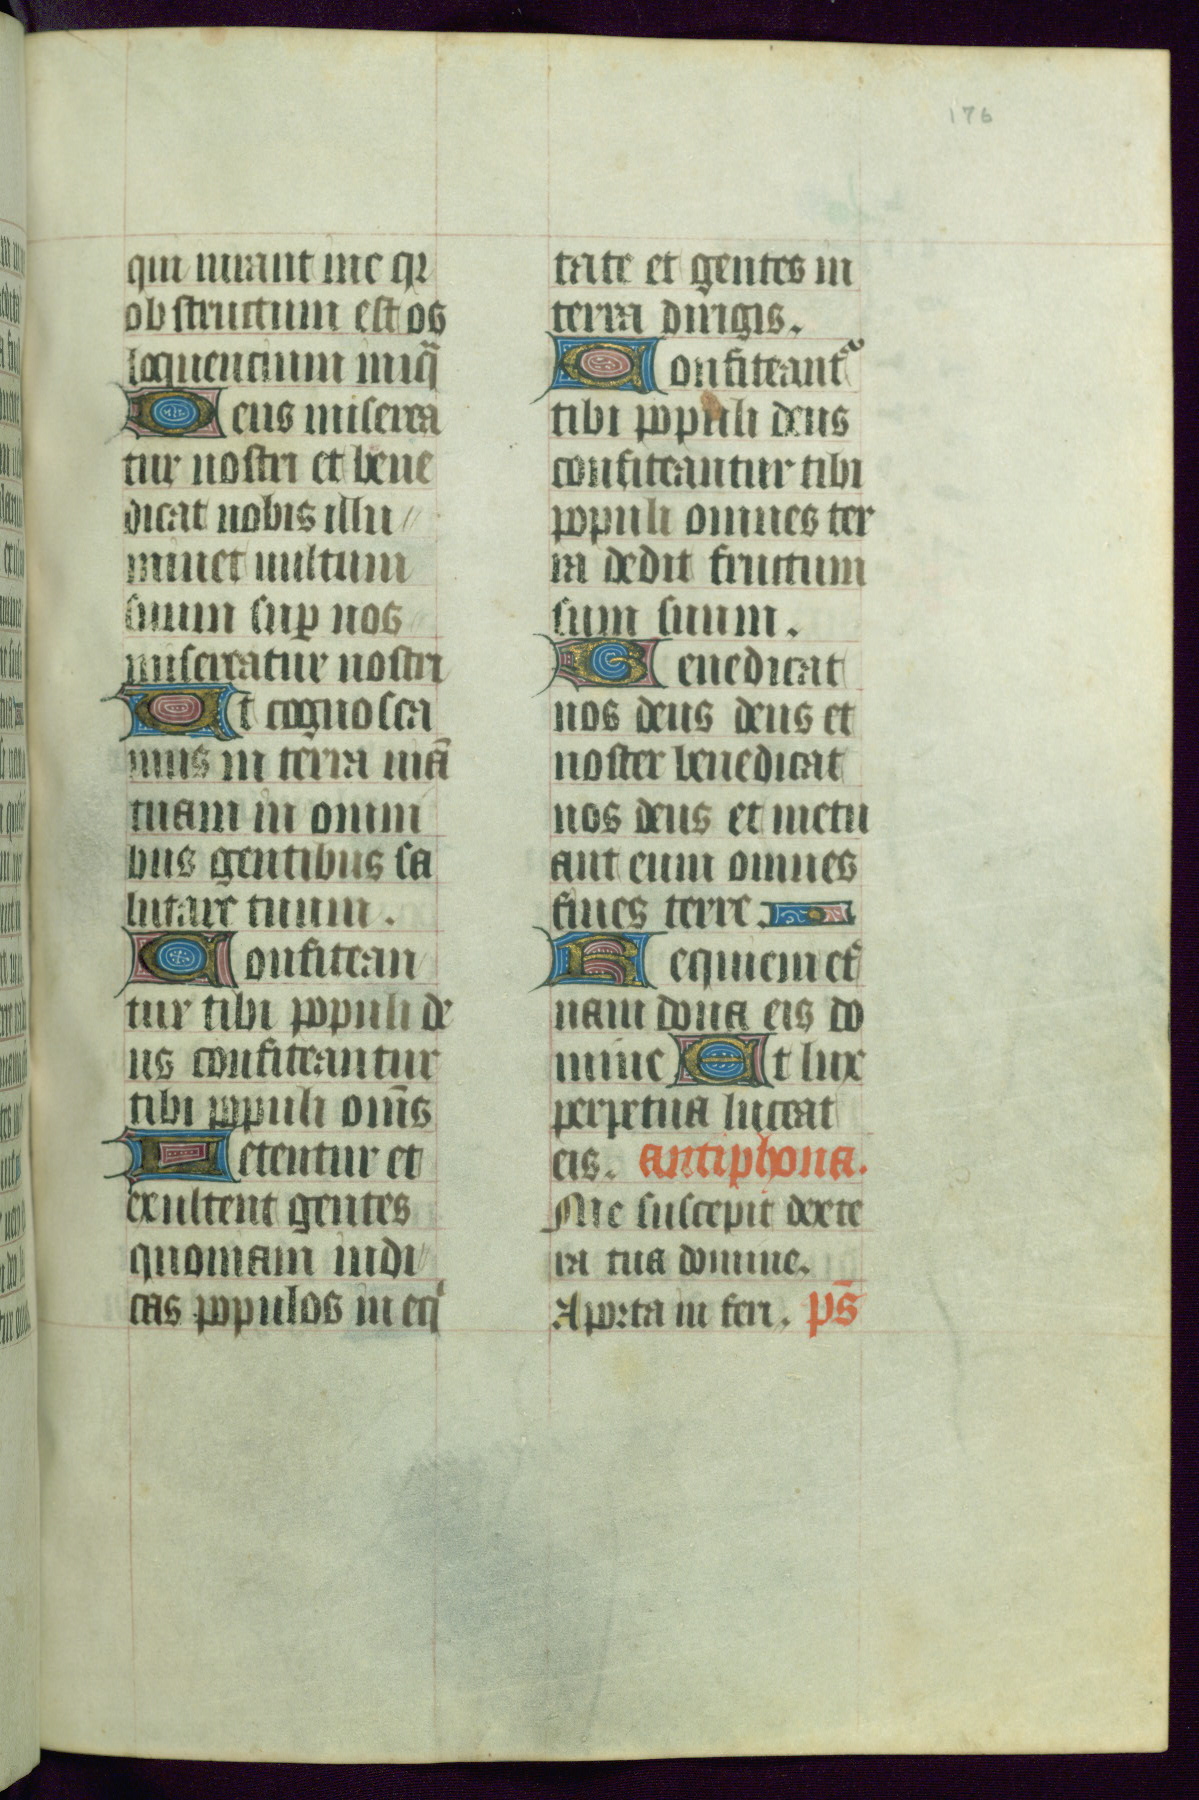 176
qui iurant in eo qr
obstructum est os
loquencium iniq̃
Deus miserea
tur nostri et bene
dicat nobis illu
minet uultum
suum sup̱ nos
misereatur nostri
Ut cognosca
mus in terra uiã
tuam in omni
bus gentibus sa
lutare tuum.
Confitean
tur tibi populi de
us confiteantur
tibi populi om̃s
Letentur et
exultent gentes
quoniam iudi
cas populos in eqⁱ
tate et gentes in
terra dirigis.
Confiteantᷣ
tibi populi deus
confiteantur tibi
populi omnes ter
ra dedit fructum
sum suum.
Benedicat
nos deus deus et
noster benedicat
nos deus et metu
ant eum omnes
fines terre.
Requiem et̾
nam dona eis do
mine Et lux
perpetua luceat
eis. antiphona.
Me suscepit dexte
ra tua domine.
A porta in feri. ps̃